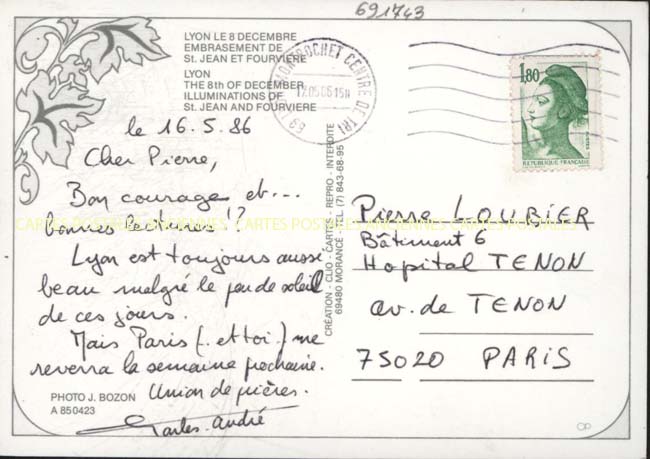 691743
LYON LE 8 DECEMBRE
EMBRASEMENT DE
St. JEAN ET FOURVIERE
LYON
THE 8th OF DECEMBER
ILLUMINATIONS OF
St. JEAN AND FOURVIERE
MONTROCHET CENTRE DE TRI
1,80
REPUBLIQUE FRANÇAISE
le 16.5.86
Cher Pierre,
Bon courage et...
bonnes lectures !?
Lyon est toujours aussi
beau malgré le peu de soleil
de ces jours.
Mais Paris (. et toi.) me
reverra la semaine prochaine.
Union de prières.
Charles-André
PHOTO J. BOZON
A 850423
CRÉATION - CLIO - CARTES - REPRO - INTERDITE
69480 MORANCE - TEL. (7) 843-68-95
Pierre LOUBIER
Bâtiment 6
Hopital TENON
av. de TENON
75020 PARIS
CARTES POSTALES ANCIENNES CARTES POSTALES ANCIENNES CARTES POSTALES